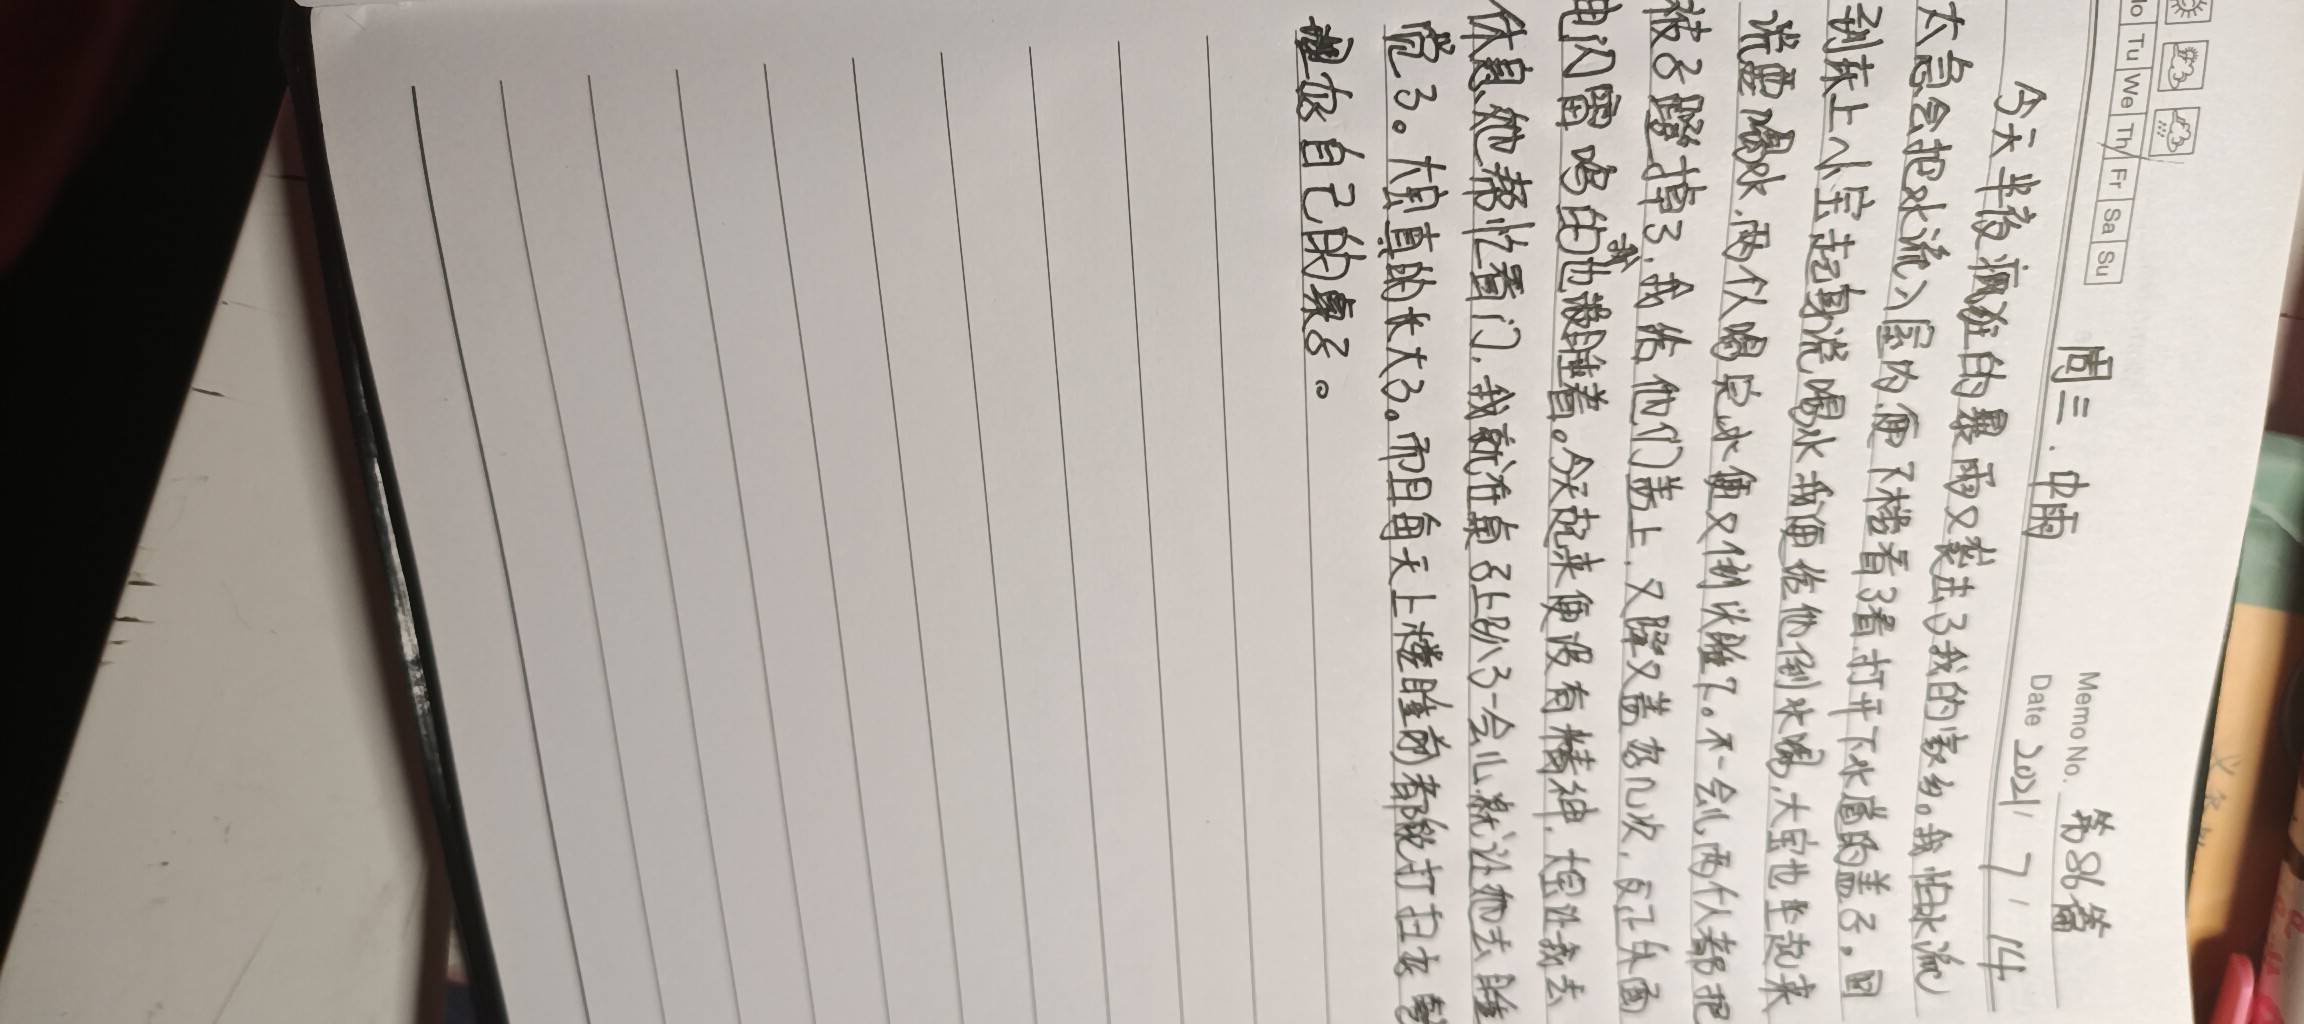 Mo Tu We Th Fr Sa Su
Memo No. 第86篇
周三.中雨
Date 2021/7/14
今天半夜疯狂的暴雨又袭击了我的家乡。我怕水流
太急会把水流入屋内,便下楼看了看.打开下水道的盖了。回
到床上小宝起身说喝水我便给他倒水喝,大宝也坐起来
说要喝水.两个人喝完水便又倒头睡了。不一会儿两个人都把
被子蹬掉了.我给他们盖上.又蹬又盖好几次,反正外面
电闪雷鸣的我也没睡着。今天起来便没有精神.大宝让我去
休息,他帮忙看门.我就在桌子上趴了一会儿.就让他去睡
觉了。大宝真的长大了。而且每天上楼睡前都能打扫衣
理在自己的桌子。